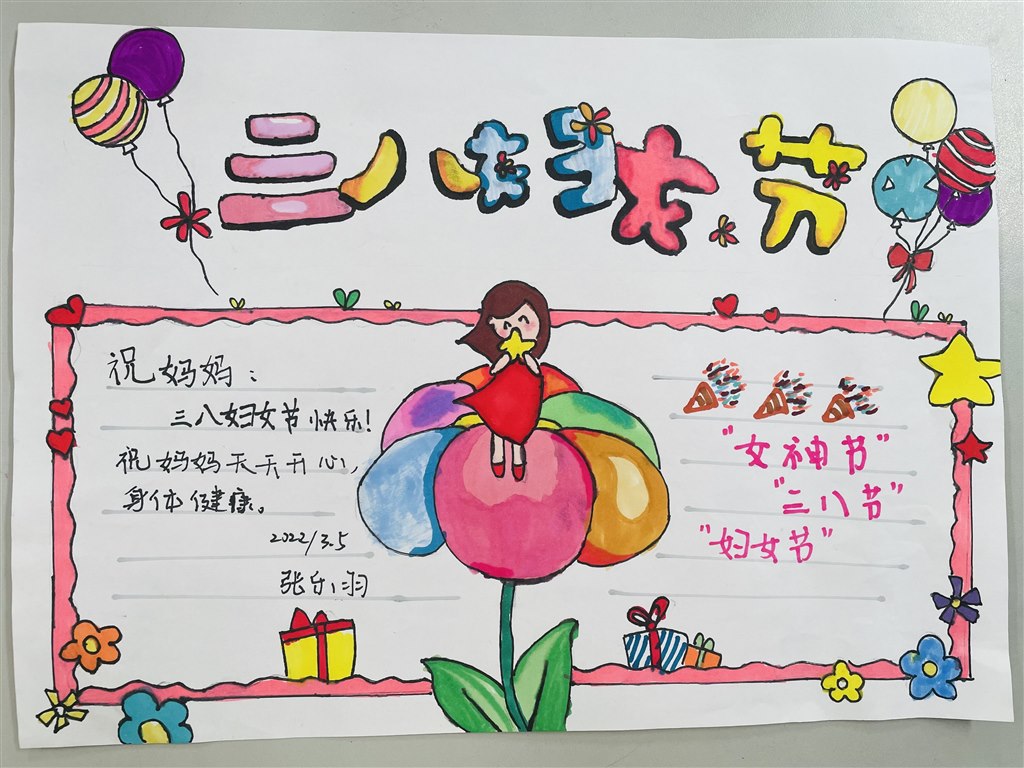 三八妇女节
祝妈妈：
三八妇女节快乐！
祝妈妈天天开心，
身体健康。
2022/3.5
张乐羽
"女神节"
"三八节"
"妇女节"